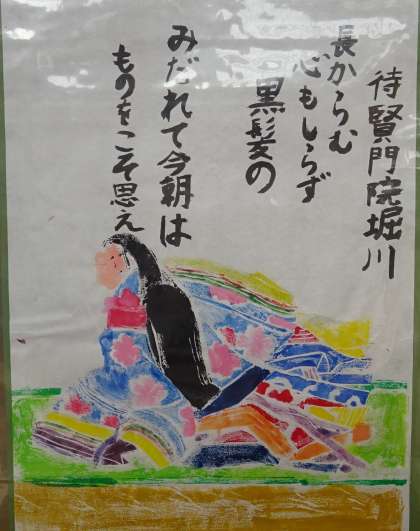 待賢門院堀川
長からむ
心もしらず
黒髪の
みだれて今朝は
ものをこそ思え